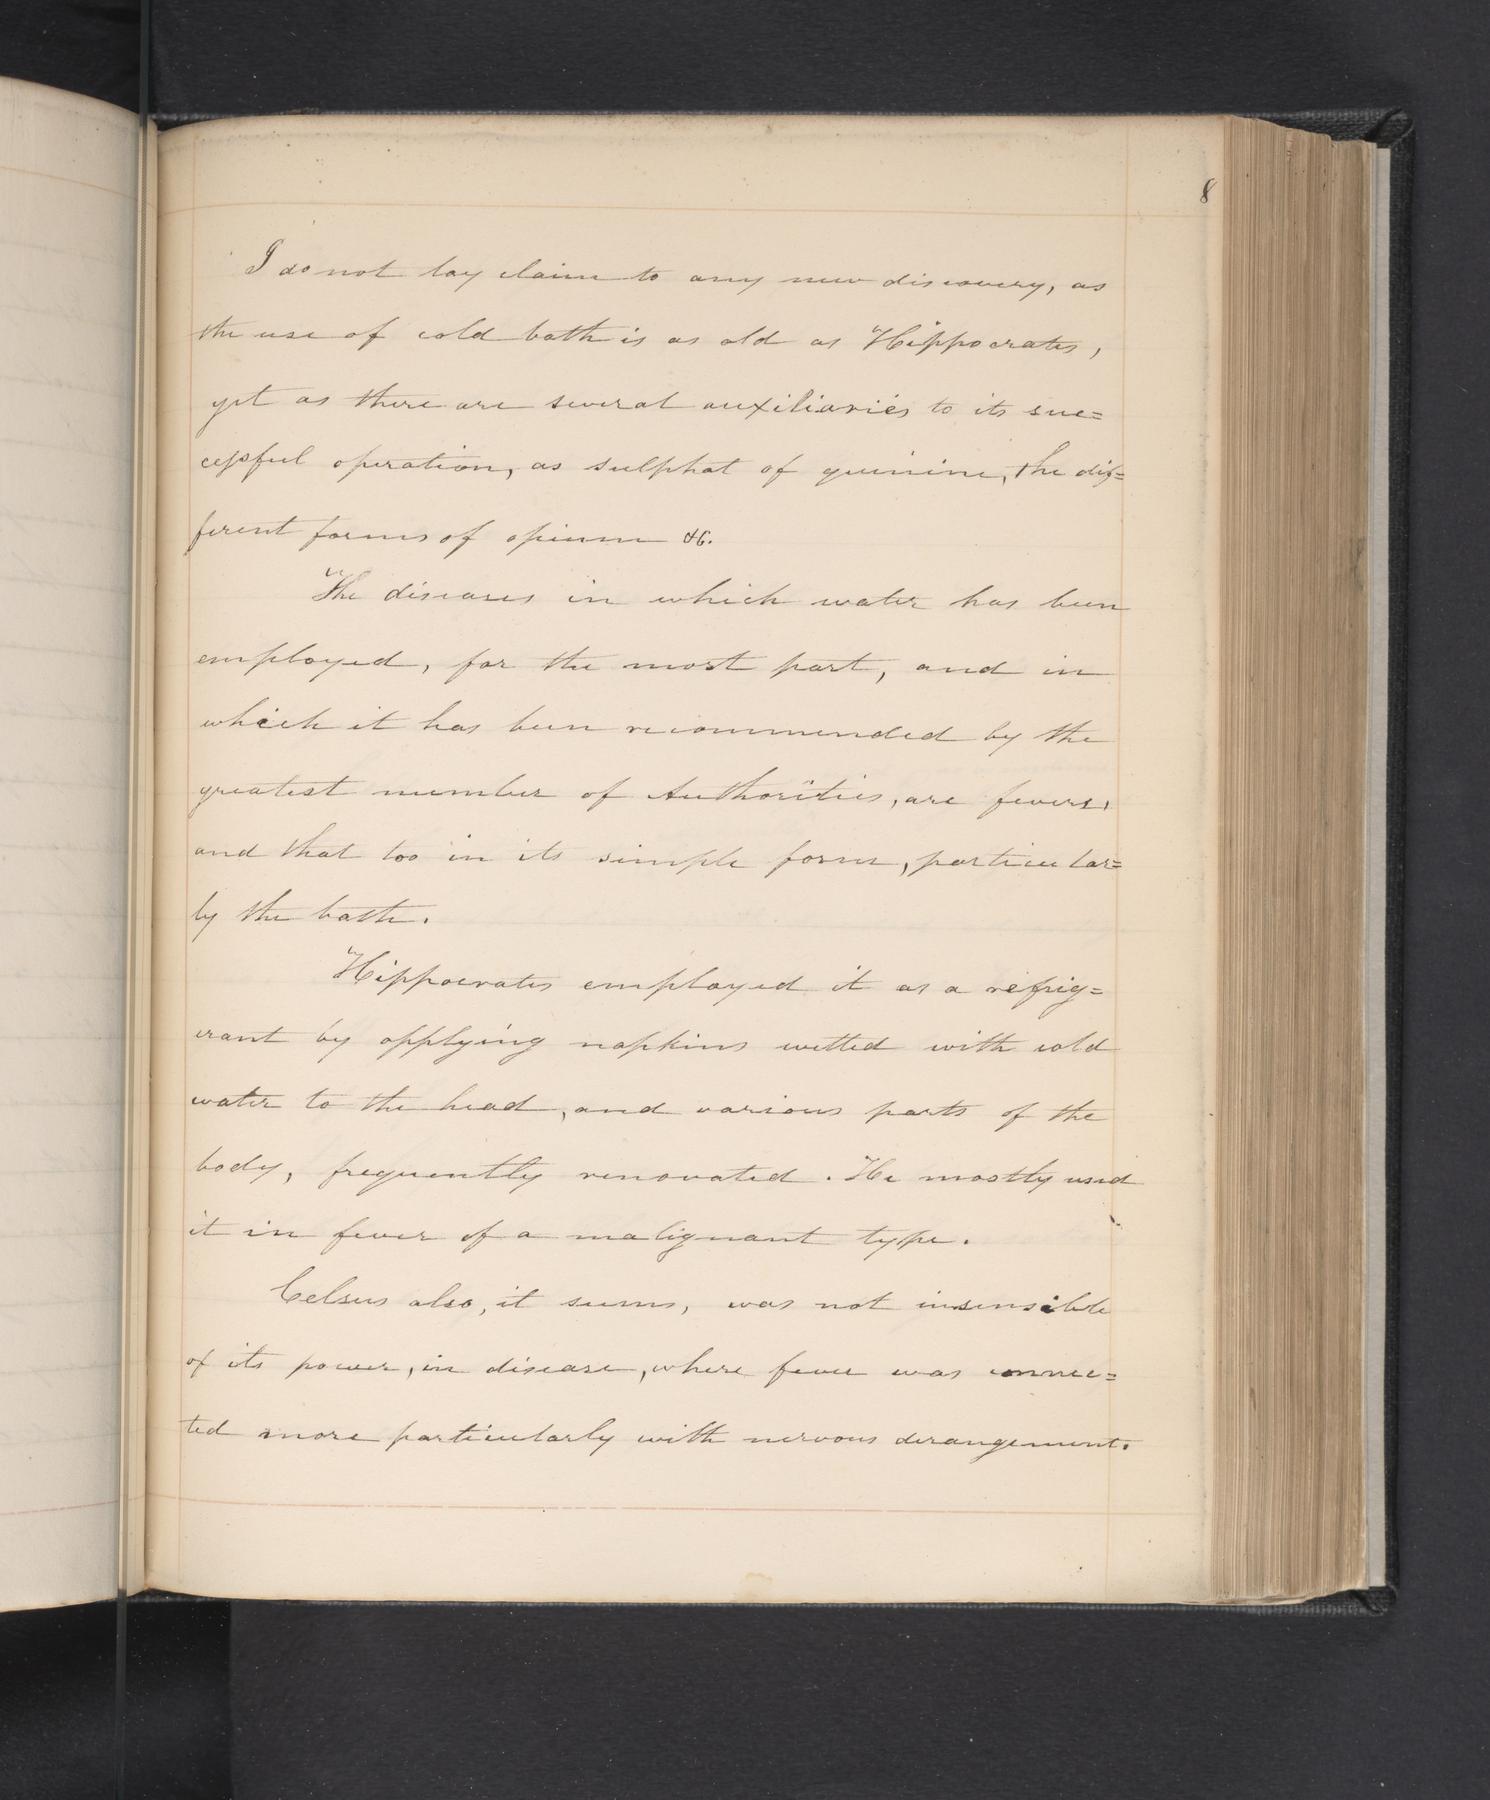 8
I do not lay claim to any new discovery, as
the use of cold bath is as old as Hippocrates,
yet as there are several auxiliaries to its suc=
cessful operation, as sulphat of quinine, the dif=
ferent forms of opium &c.
The diseases in which water has been
employed, for the most part, and in
which it has been recommended by the
greatest number of Authorities, are fevers,
and that too in its simple form, particular=
ly the bath.
Hippocrates employed it as a refrig=
erant by applying napkins wetted with cold
water to the head, and various parts of the
body, frequently renovated. He mostly used
it in fever of a malignant type.
Celsus also, it seems, was not insensible
of its power, in disease, where fever was connec=
ted more particularly with nervous derangement.